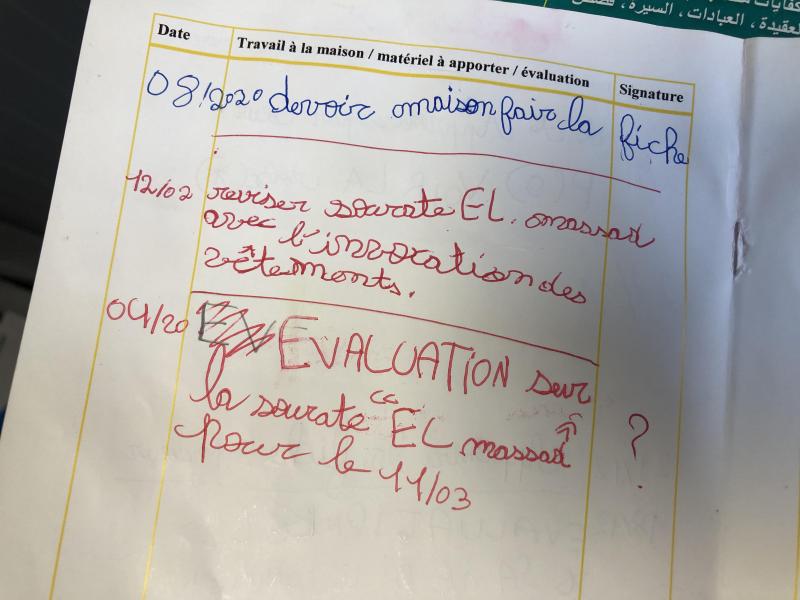 كفايات
العقيدة، العبادات، السيرة، قصص
Date Travail à la maison / matériel à apporter / évaluation Signature
08/2020 devoir maison fair la fiche
12/02 reviser sourate EL. massad
avec l'invocation des
vêtements.
04/20 EVALUATION sur
la sourate "EL massad"
pour le 11/03 ?